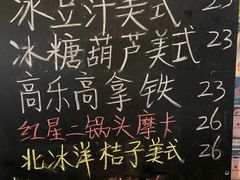 冰豆汁美式 23
冰糖葫芦美式 23
高乐高拿铁 23
红星二锅头摩卡 26
北冰洋桔子美式 26